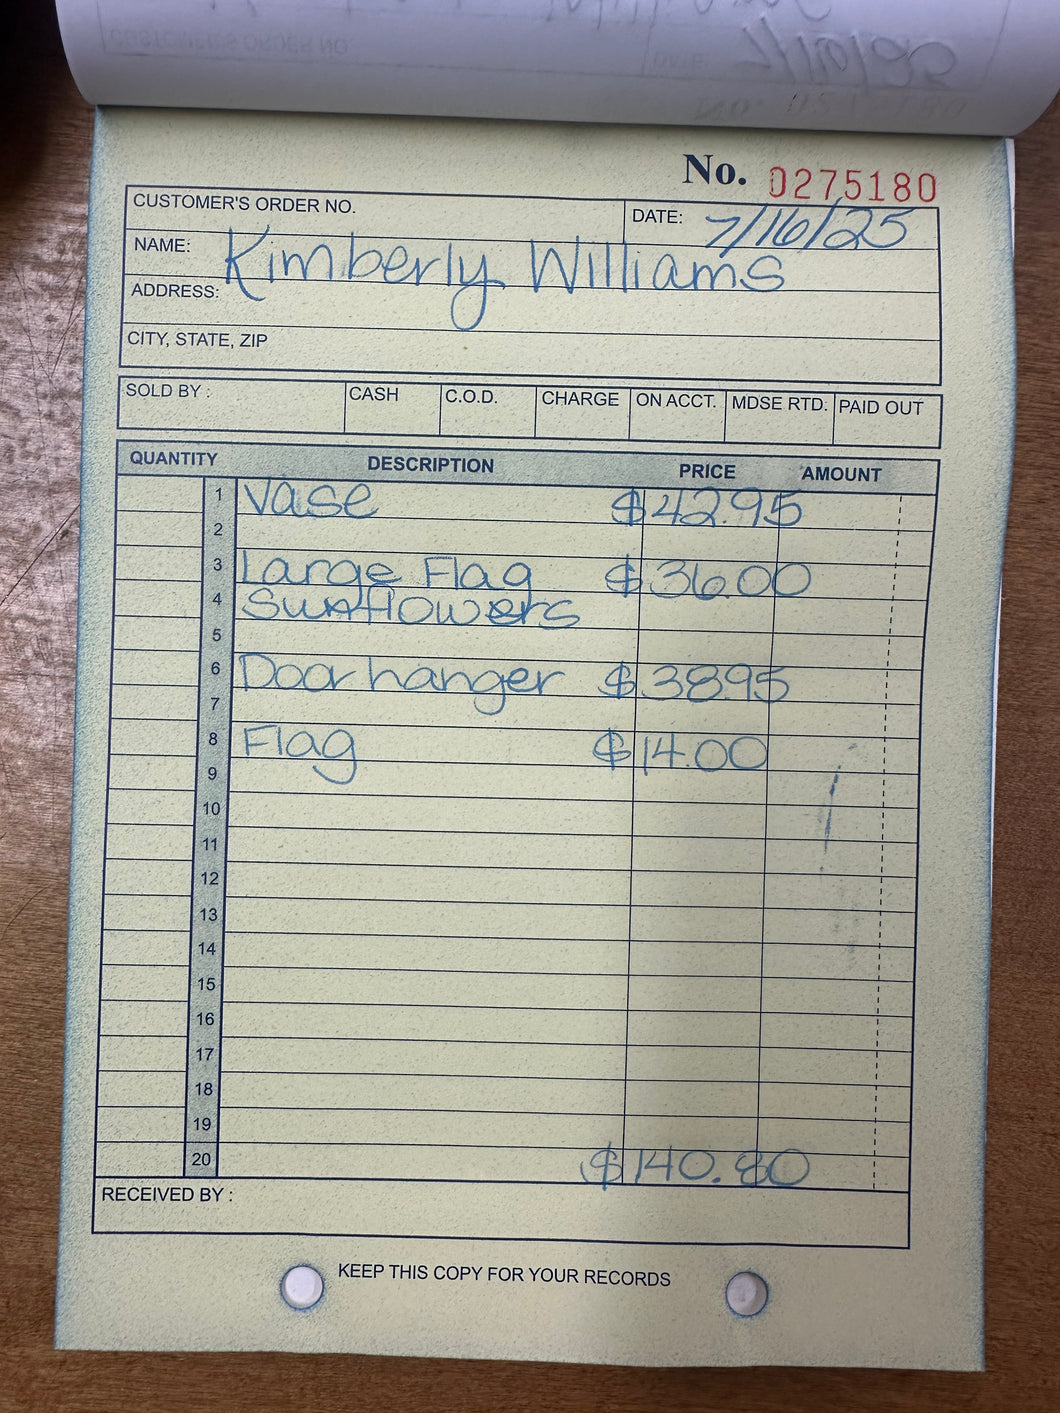 No. 0275180
CUSTOMER'S ORDER NO.
DATE: 7/16/25
NAME: Kimberly Williams
ADDRESS:
CITY, STATE, ZIP
SOLD BY : CASH C.O.D. CHARGE ON ACCT. MDSE RTD. PAID OUT
QUANTITY DESCRIPTION PRICE AMOUNT
1 Vase $42.95
2
3 Large Flag $36.00
4 Sunflowers
5
6 Door hanger $38.95
7
8 Flag $14.00
9
10
11
12
13
14
15
16
17
18
19
20 $140.80
RECEIVED BY :
KEEP THIS COPY FOR YOUR RECORDS